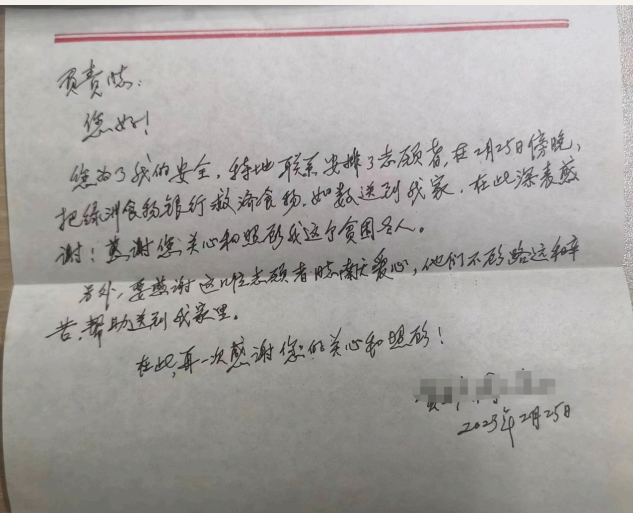 您好！
您为了我的安全，特地联系安排了志愿者，在2月25日傍晚，
把绿洲食物银行救济食物，如数送到我家，在此深表感
谢！感谢您关心和照顾我这个贫困老人。
另外，要感谢这位志愿者的爱心，他们不顾路远和辛
苦，帮助送到我家里。
在此，再一次感谢您的关心和照顾！
2023年2月25日